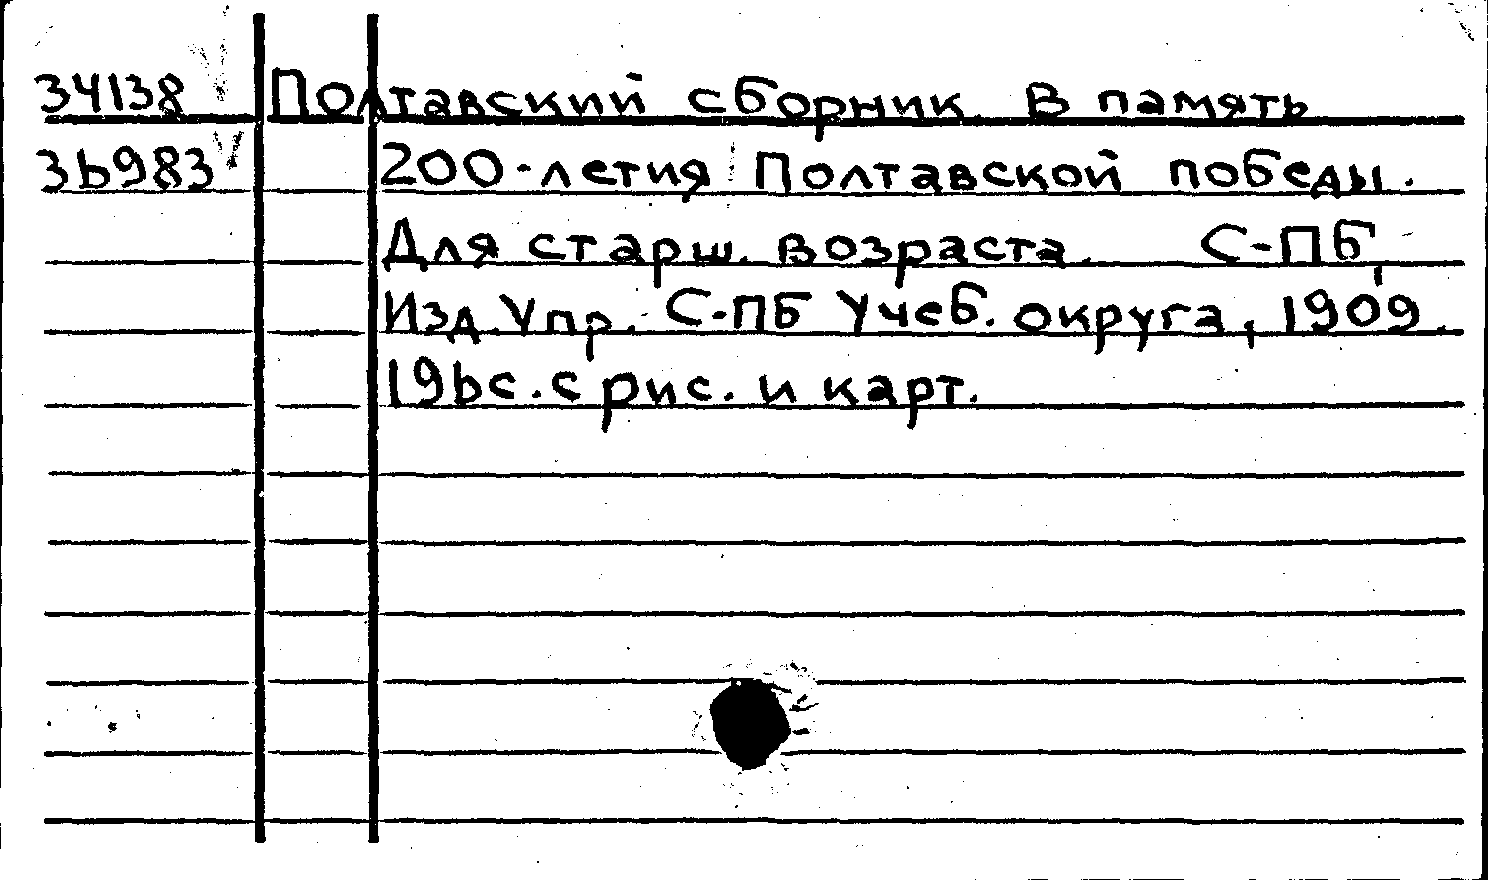 34138 Полтавский сборник. В память
36983 200-летия Полтавской победы.
Для старш. возраста. С-ПБ,
Изд. Упр. С-ПБ Учеб. округа, 1909.
196с. с рис. и карт.